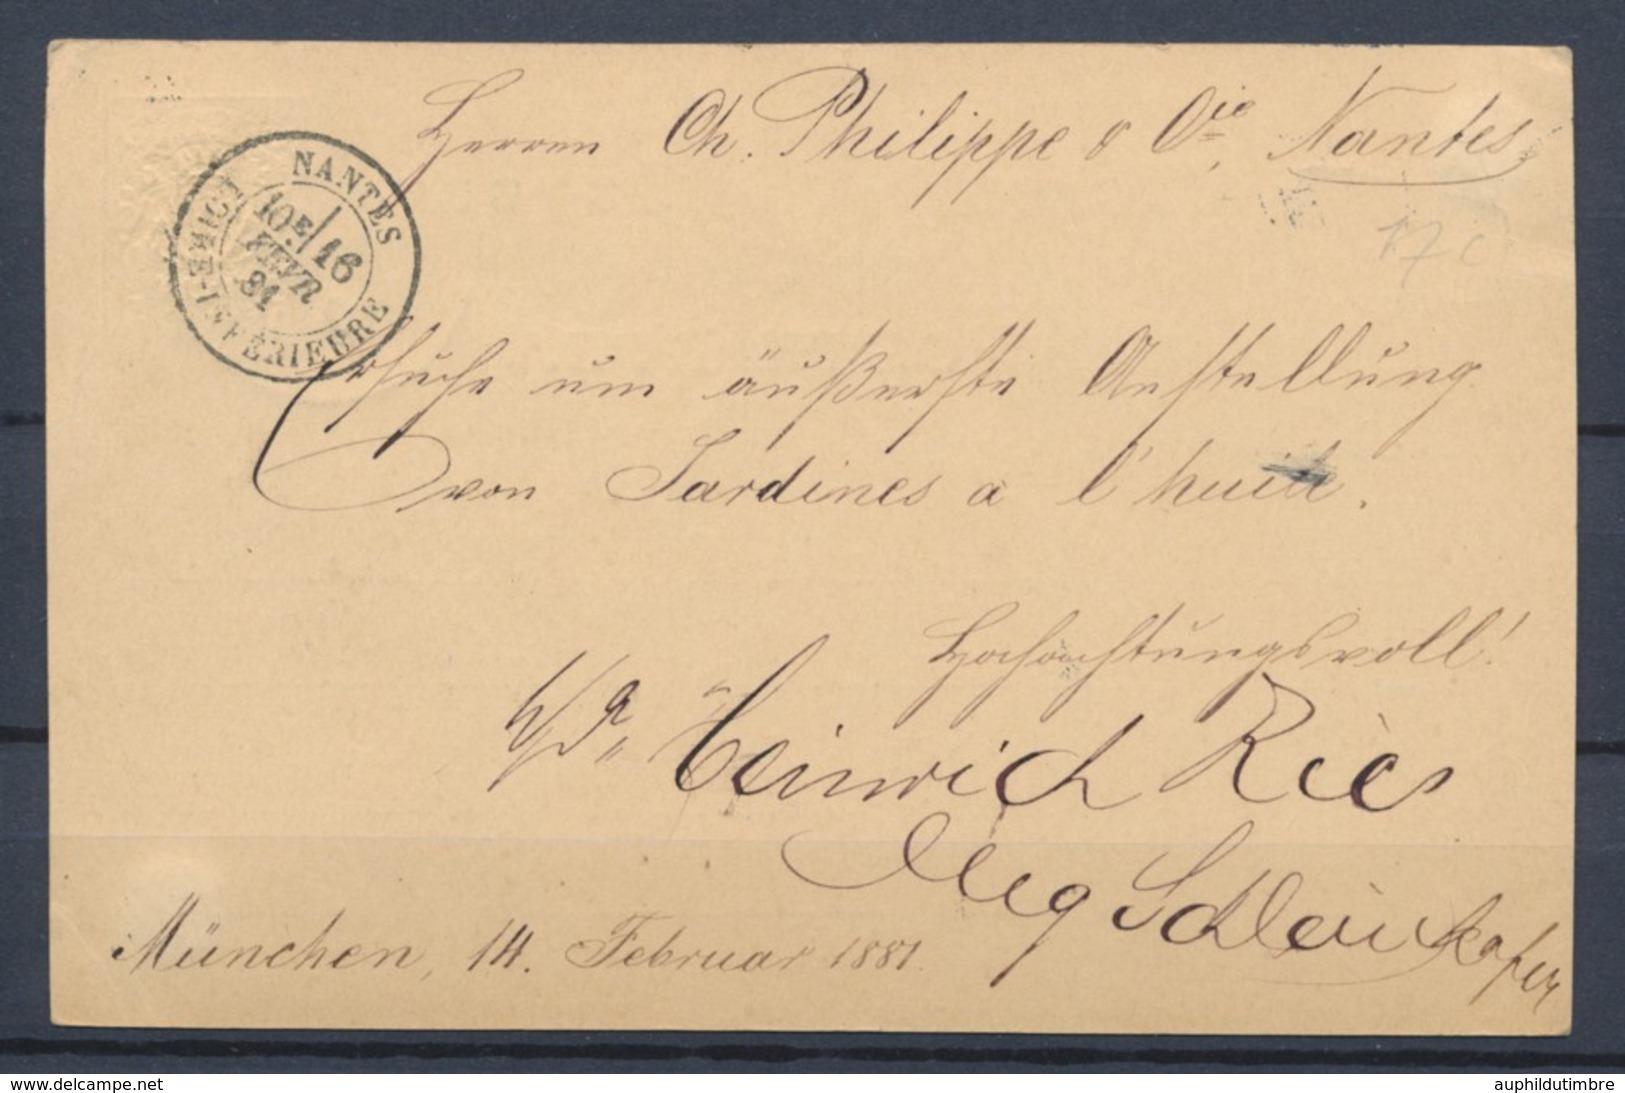 Herren Ch. Philippe & Cie, Nantes
NANTES
LOIRE-INFÉRIEURE
10E/16
FEVR
81
17 c
Ersuche um äußerste Anstellung
von Sardines a l'huile.
Hochachtungsvoll!
Heinrich Ries
München, 14. Februar 1881.
delcampe.net
auphildutimbre